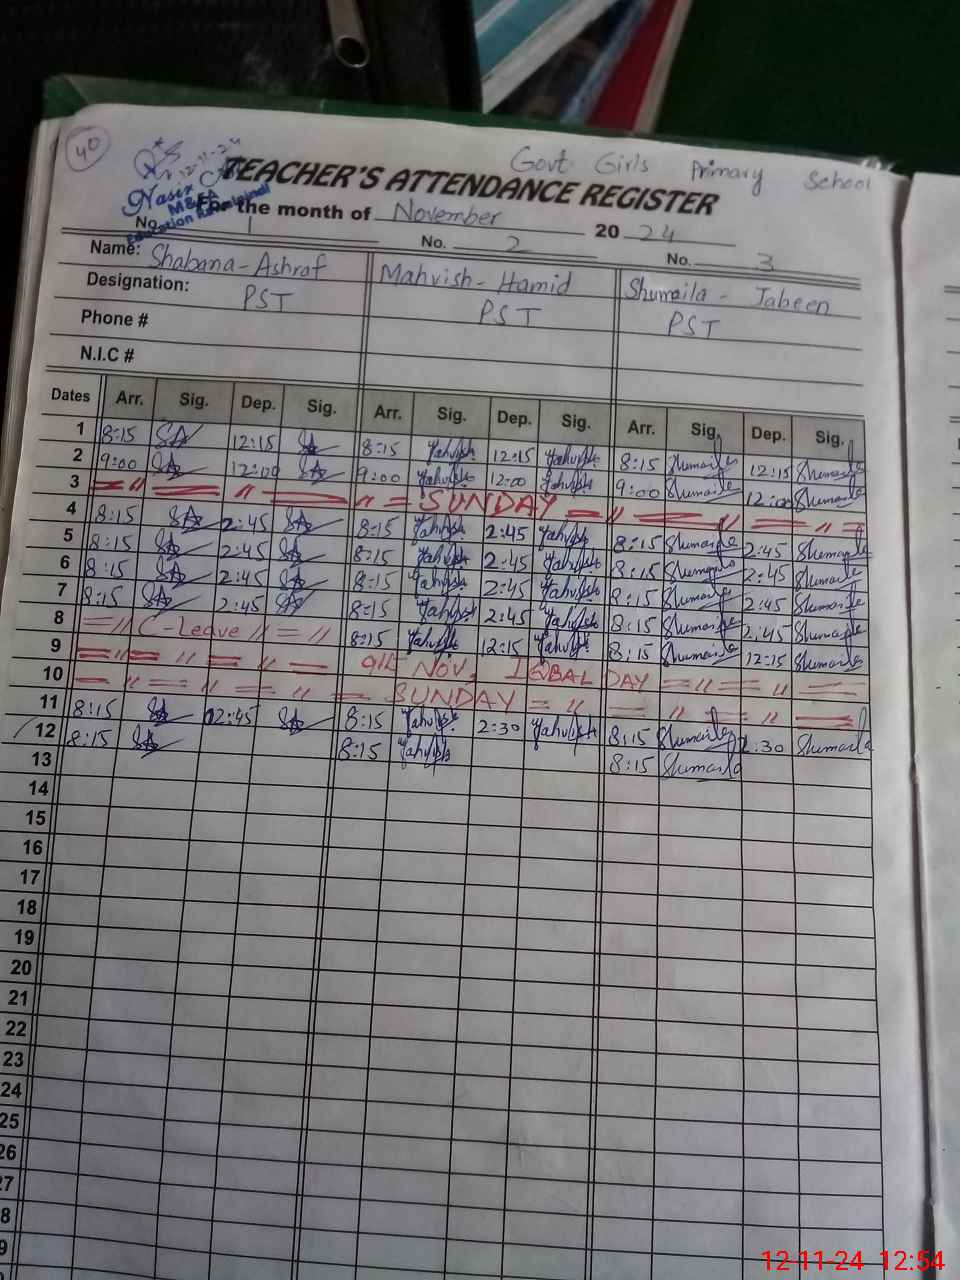 40
12-11-24
Govt Girls Primary School
TEACHER'S ATTENDANCE REGISTER
Nasir
M&EA
Education Rawalpindi
For the month of November 2024
No. 1 No. 2 No. 3
Name: Shabana-Ashraf Mahvish-Hamid Shumaila-Jabeen
Designation: PST PST PST
Phone #
N.I.C #
Dates Arr. Sig. Dep. Sig. Arr. Sig. Dep. Sig. Arr. Sig. Dep. Sig.
1 8:15 SA 12:15 SA 8:15 12:15 8:15 Shumaila 12:15 Shumaila
2 9:00 SA 12:00 SA 9:00 12:00 9:00 Shumaila 12:00 Shumaila
3 = " = " = " = SUNDAY = " = " = " =
4 8:15 SA 2:45 SA 8:15 2:45 8:15 Shumaila 2:45 Shumaila
5 8:15 SA 2:45 SA 8:15 2:45 8:15 Shumaila 2:45 Shumaila
6 8:15 SA 2:45 SA 8:15 2:45 8:15 Shumaila 2:45 Shumaila
7 8:15 SA 2:45 SA 8:15 2:45 8:15 Shumaila 2:45 Shumaila
8 = " C-Leave " = " 8:15 12:15 8:15 Shumaila 12:15 Shumaila
9 = " = " = " = 9th NOV. IQBAL DAY = " = " =
10 = " = " = " = SUNDAY = " = " = " =
11 8:15 SA 12:45 SA 8:15 2:30 8:15 Shumaila 2:30 Shumaila
12 8:15 SA 8:15 8:15 Shumaila
13
14
15
16
17
18
19
20
21
22
23
24
25
26
27
8
9
12-11-24 12:54